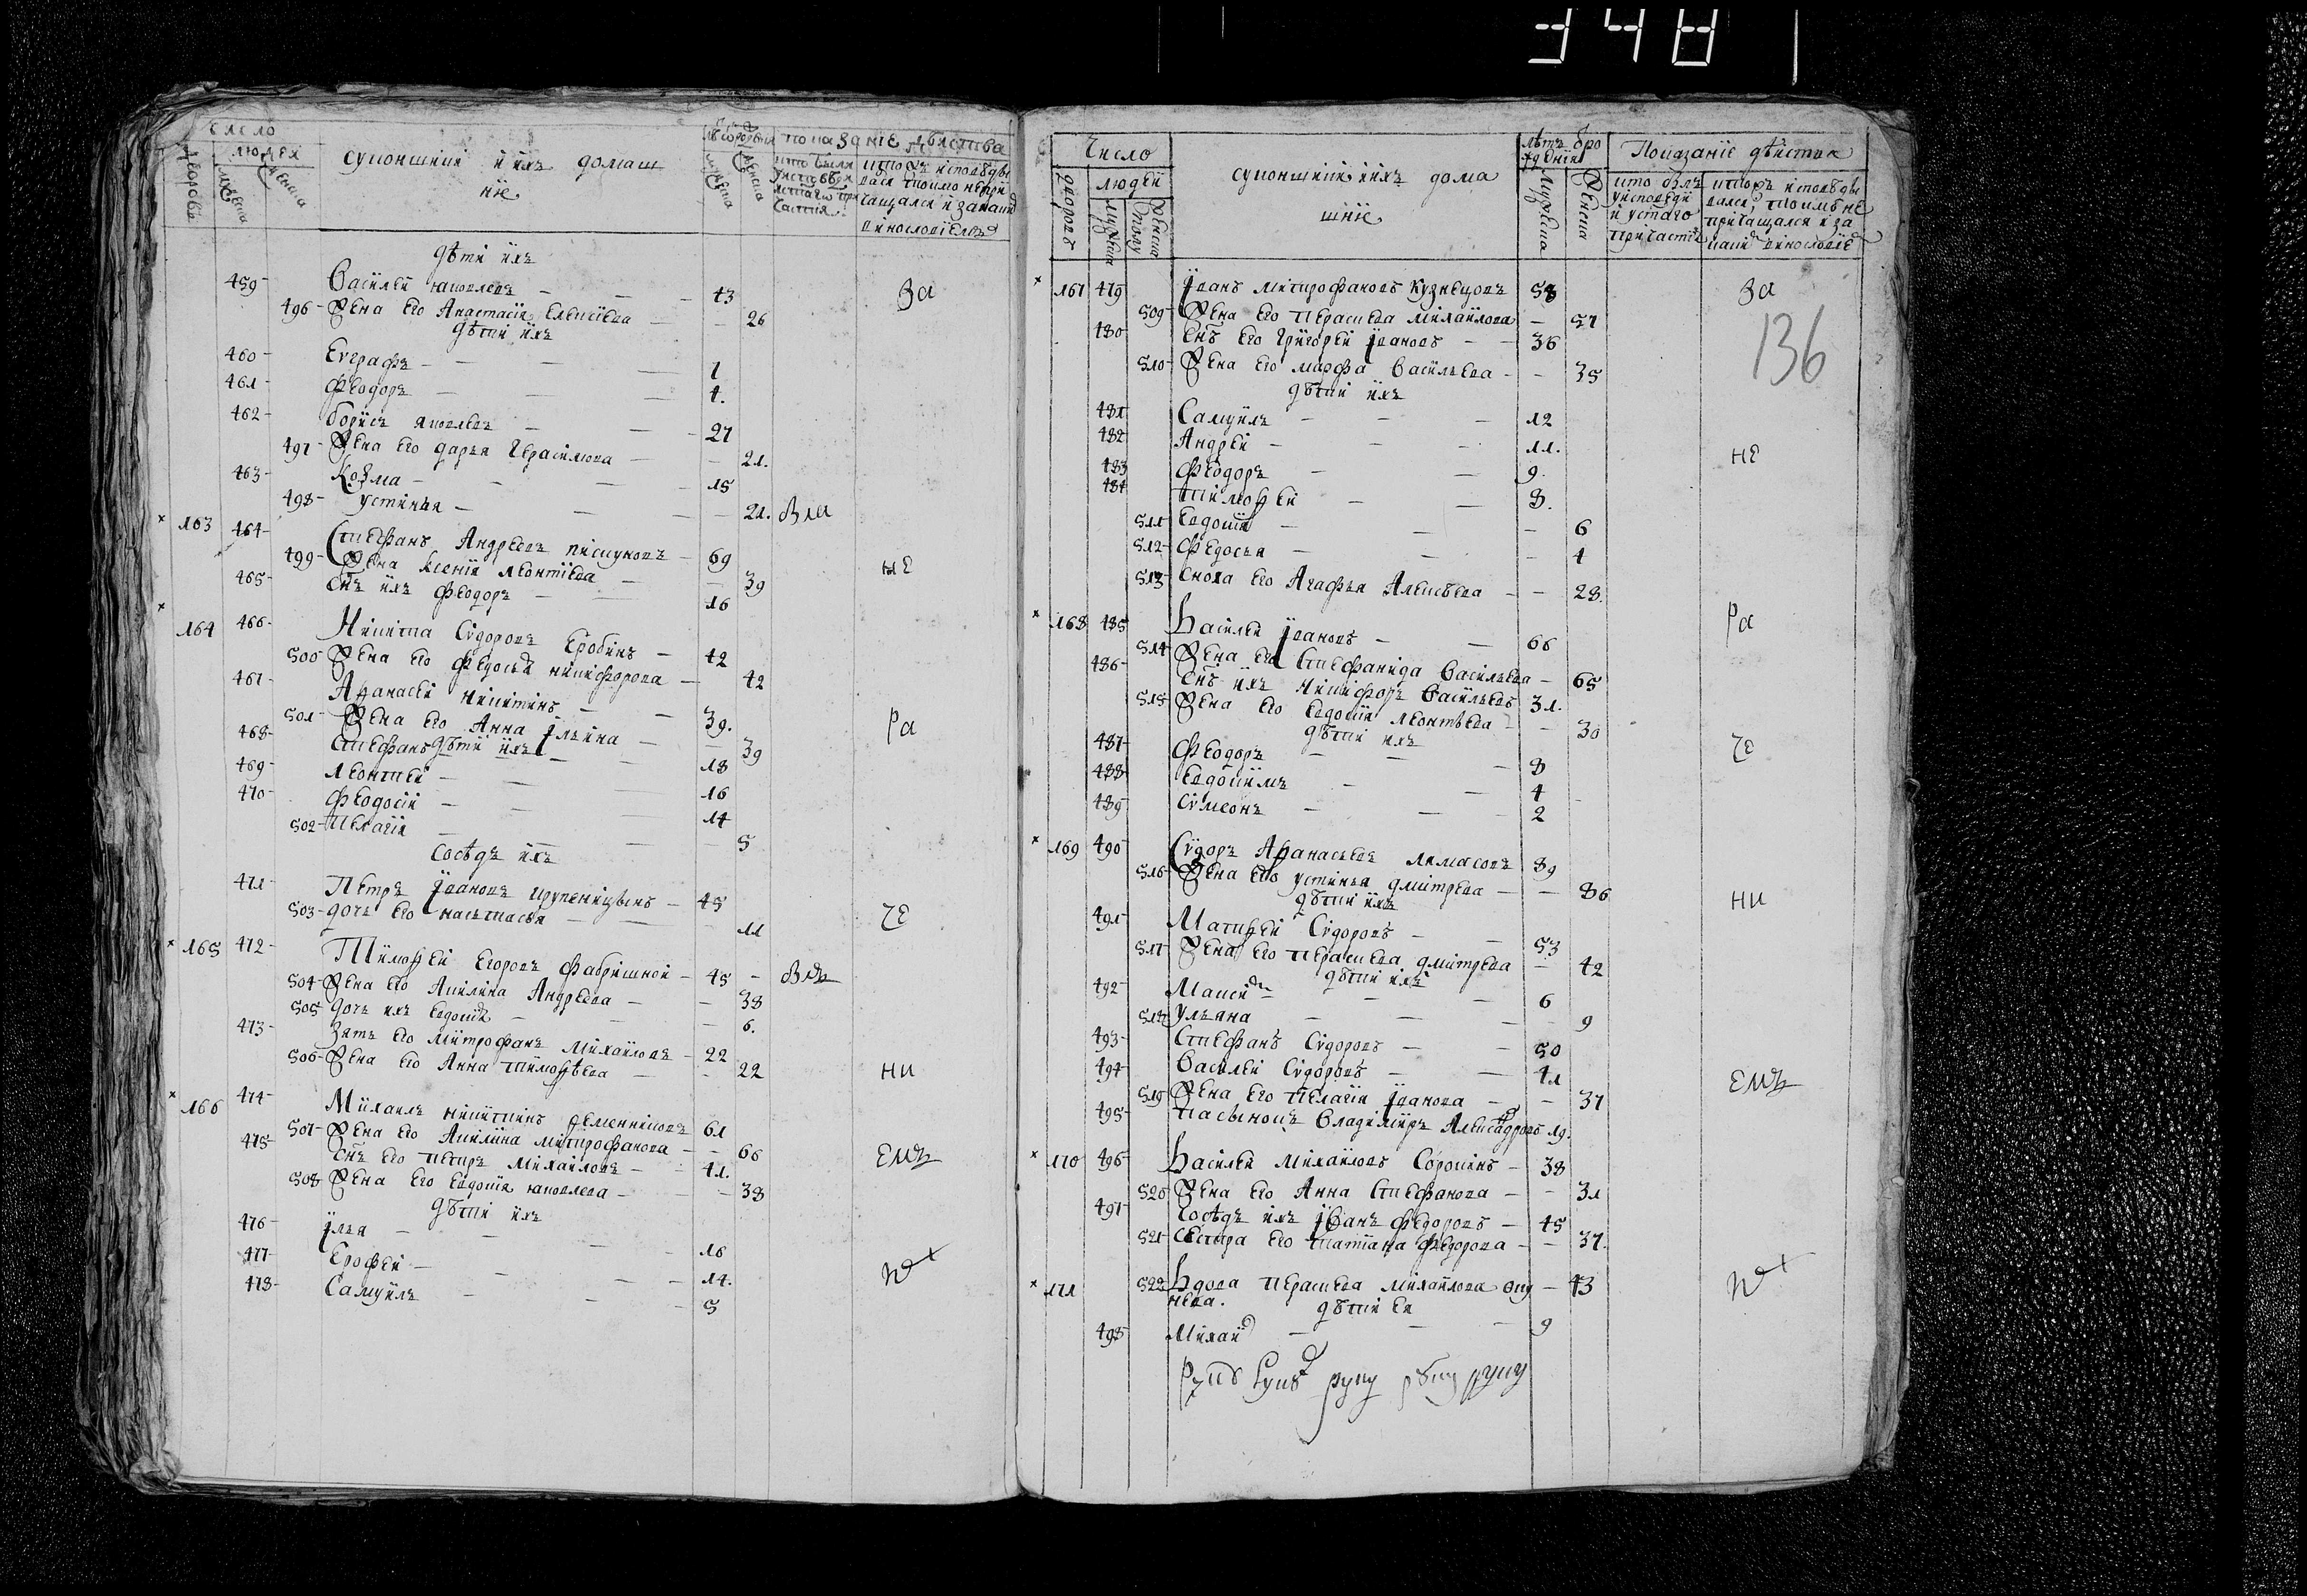 348
Число
людей
дворовъ
мужеска
женска
Суконщики и ихъ домаш
ние
мужеска
женска
показание действа
кто были
у исповеди
и святаго при
частия
кто жъ исповеды
вался токмо не при
чащался и за каким
винословиемъ
дѣти ихъ
459 Василей яковлевъ 43 За
496 Жена его Анастасия Елисиева 26
дѣти ихъ
460 Евграфъ 1
461 Феодоръ 4.
462 борисъ яковлевъ 27
497 Жена его дарья Герасимова 21.
463 Козма 15
498 устинья 21.
163 464 Стефанъ Андреевъ пискуновъ 69
499 Жена ксения леонтиева 39 не
465 Снъ ихъ феодоръ 16
164 466 Никита Сидоровъ 42
500 Жена его федосья никифорова 42
467 Афанасей никитинъ 39.
501 Жена его Анна Ильина 39 ра
дѣти ихъ
468 Стефанъ 18
469 леонтей 16
470 феодосий 14
502 пелагия 5
Сосѣдъ ихъ
471 Петръ Ивановъ крупеницынъ 45
503 дочь его настасья 11 че
165 472 Тимофей Егоровъ фабришной 45
504 Жена его Акилина Андреева 38
505 дочь ихъ Евдокия 6.
473 Зять его митрофанъ михайловъ 22
506 Жена его Анна тимофеева 22 ни
166 474 Михаилъ никитинъ 61
507 Жена его Акилина митрофанова 66
475 Снъ его петръ михайловъ 41. емъ
508 Жена его Евдокия яковлева 38
дѣти ихъ
476 Илья 16
477 Ерофей 14.
478 Самуилъ 5
Число
людей
дворовъ
мужеска
женска
полу
суконщики и ихъ дома
шние
лѣтъ от ро
ждения
мужеска
женска
Показание действа
кто былъ
у исповеди
и святаго
причастия
ктожъ исповеды
вался, токмъ не
причащался и за
каким винословие
167 479 Иванъ митрофановъ Кузнецовъ 58 За
509 Жена его Параскева михайлова 57
136
480 Снъ его Григорей Ивановъ 36
510 Жена его марфа васильева 35
дѣти ихъ
481 Самуилъ 12
482 Андрей 11. не
483 феодоръ 9.
484 тимофей 8.
511 Евдокия 6
512 Федосья 4
513 Сноха его Агафья Алексѣева 28.
168 485 Василей Ивановъ 66 ра
514 Жена его Стефанида васильева 65
486 Снъ ихъ никифоръ васильевъ 31.
515 Жена его Евдокия леонтьева 30
дѣти ихъ
487 феодоръ 8 че
488 Евдокимъ 4
489 Симеонъ 2
169 490 Сидоръ Афанасьевъ Алмасовъ 89
516 Жена его устинья дмитрева 86
дѣти ихъ ни
491 Матфей Сидоровъ 53
517 Жена его Параскева дмитрева 42
дѣти ихъ
492 Максимъ 6
518 ульяна 9
493 Стефанъ Сидоровъ 50
494 василей Сидоровъ 41 емъ
519 Жена его пелагия Иванова 37
495 пасынокъ владимиръ Александровъ 19.
170 496 Василей михайловъ Сорокинъ 38
520 Жена его Анна Стефанова 31
497 Сосѣдъ ихъ Иванъ федоровъ 45
521 Сестра его татиана федорова 37.
171 522 Вдова Параскева михайлова 43
нева. дѣти ея
498 Михаилъ 9